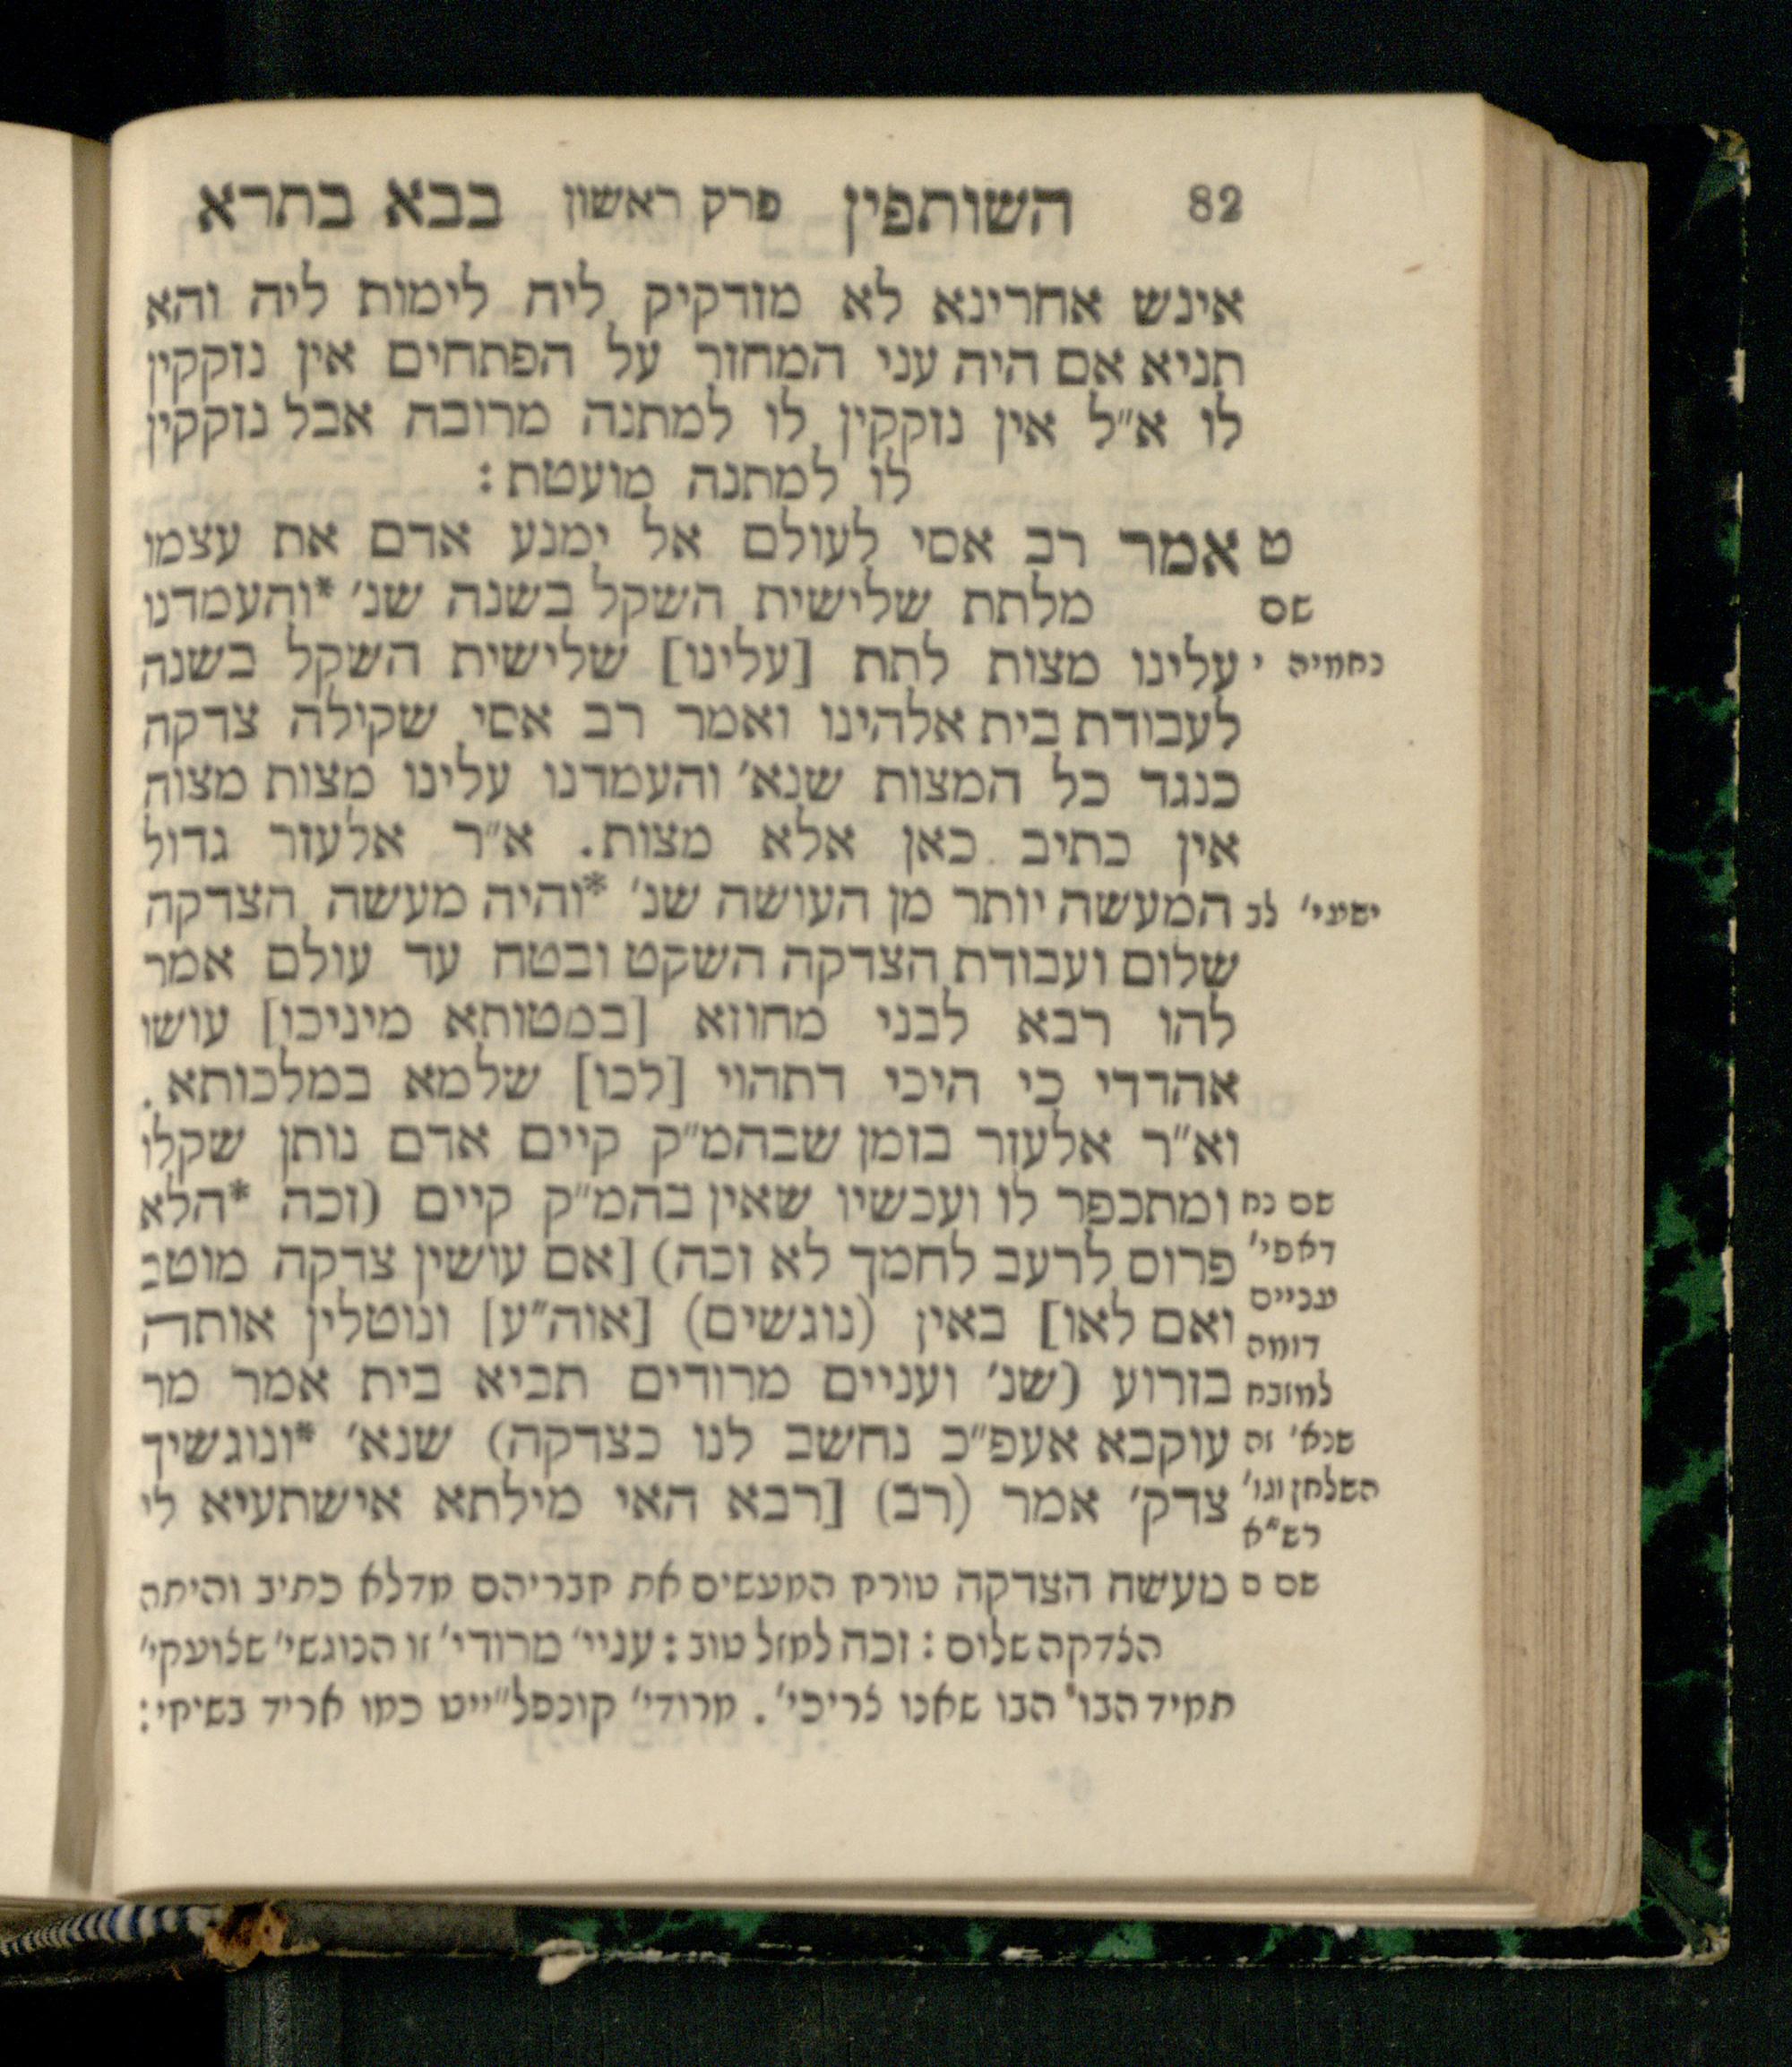 82 השותפין פרק ראשון בבא בתרא
אינש אחרינא לא מזדקיק ליה לימות ליה והא
תניא אם היה עני המחזר על הפתחים אין נזקקין
לו א״ל אין נזקקין לו למתנה מרובה אבל נזקקין
לו למתנה מועטת :
ט אמר רב אסי לעולם אל ימנע אדם את עצמו
שם מלתת שלישית השקל בשנה שנ׳ *והעמדנו
נחמיה י עלינו מצות לתת [עלינו] שלישית השקל בשנה
לעבודת בית אלהינו ואמר רב אסי שקילה צדקה
כנגד כל המצות שנא׳ והעמדנו עלינו מצות מצוה
אין כתיב כאן אלא מצות. א״ר אלעזר גדול
ישעי׳ לב המעשה יותר מן העושה שנ׳ *והיה מעשה הצדקה
שלום ועבודת הצדקה השקט ובטח עד עולם אמר
להו רבא לבני מחוזא [במטותא מיניכו] עושו
אהדדי כי היכי דתהוי [לכו] שלמא במלכותא.
וא״ר אלעזר בזמן שבהמ״ק קיים אדם נותן שקלו
שם נח ומתכפר לו ועכשיו שאין בהמ״ק קיים (זכה *הלא
דאפי׳ פרוס לרעב לחמך לא זכה) [אם עושין צדקה מוטב
עניים
ואם לאו] באין (נוגשים) [אוה״ע] ונוטלין אותה
דומה
למזבח בזרוע (שנ׳ ועניים מרודים תביא בית אמר מר
שנא׳ זה עוקבא אעפ״כ נחשב לנו כצדקה) שנא׳ *ונוגשיך
השלחן וגו׳ צדק׳ אמר (רב) [רבא האי מילתא אישתעיא לי
רש״א
שם ס מעשה הצדקה טורח המעשים את חבריהם מדלא כתיב והיתה
הצדקה שלום : זכה למזל טוב : עניי׳ מרודי׳ זו הנוגשי׳ שצועקי׳
תמיד הבו הבו שאנו צריכי׳. מרודי׳ קונפל״ייט כמו אריד בשיחי :